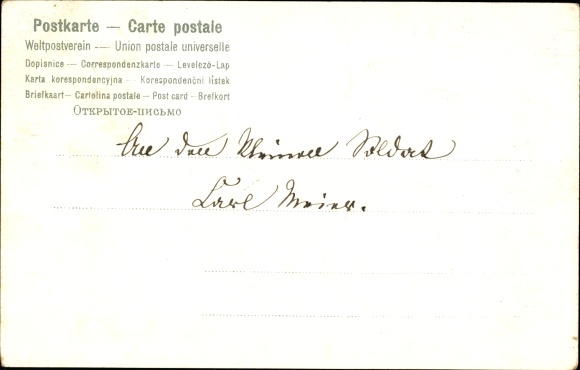 Postkarte — Carte postale
Weltpostverein — Union postale universelle
Dopisnice — Correspondenzkarte — Levelező-Lap
Karta korespondencyjna — Korespondenční lístek
Briefkaart — Cartolina postale — Post card — Brefkort
Открытое-письмо
An den kleinen Soldat
Carl Meier.